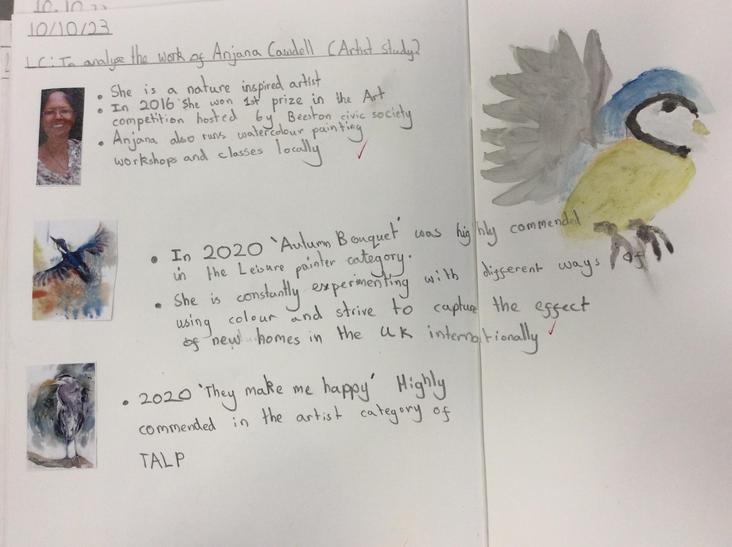 10.10.23
10/10/23
LC: To analyse the work of Anjana Cawdell (Artist study)
• She is a nature inspired artist
• In 2016 She won 1st prize in the Art
competition hosted by Beeston civic society
• Anjana also runs watercolour painting
workshops and classes locally
• In 2020 'Autumn Bouquet' was highly commended
in the Leisure painter category.
• She is constantly experimenting with different ways of
using colour and strive to capture the effect
of new homes in the UK internationally
• 2020 'They make me happy' Highly
commended in the artist category of
TALP